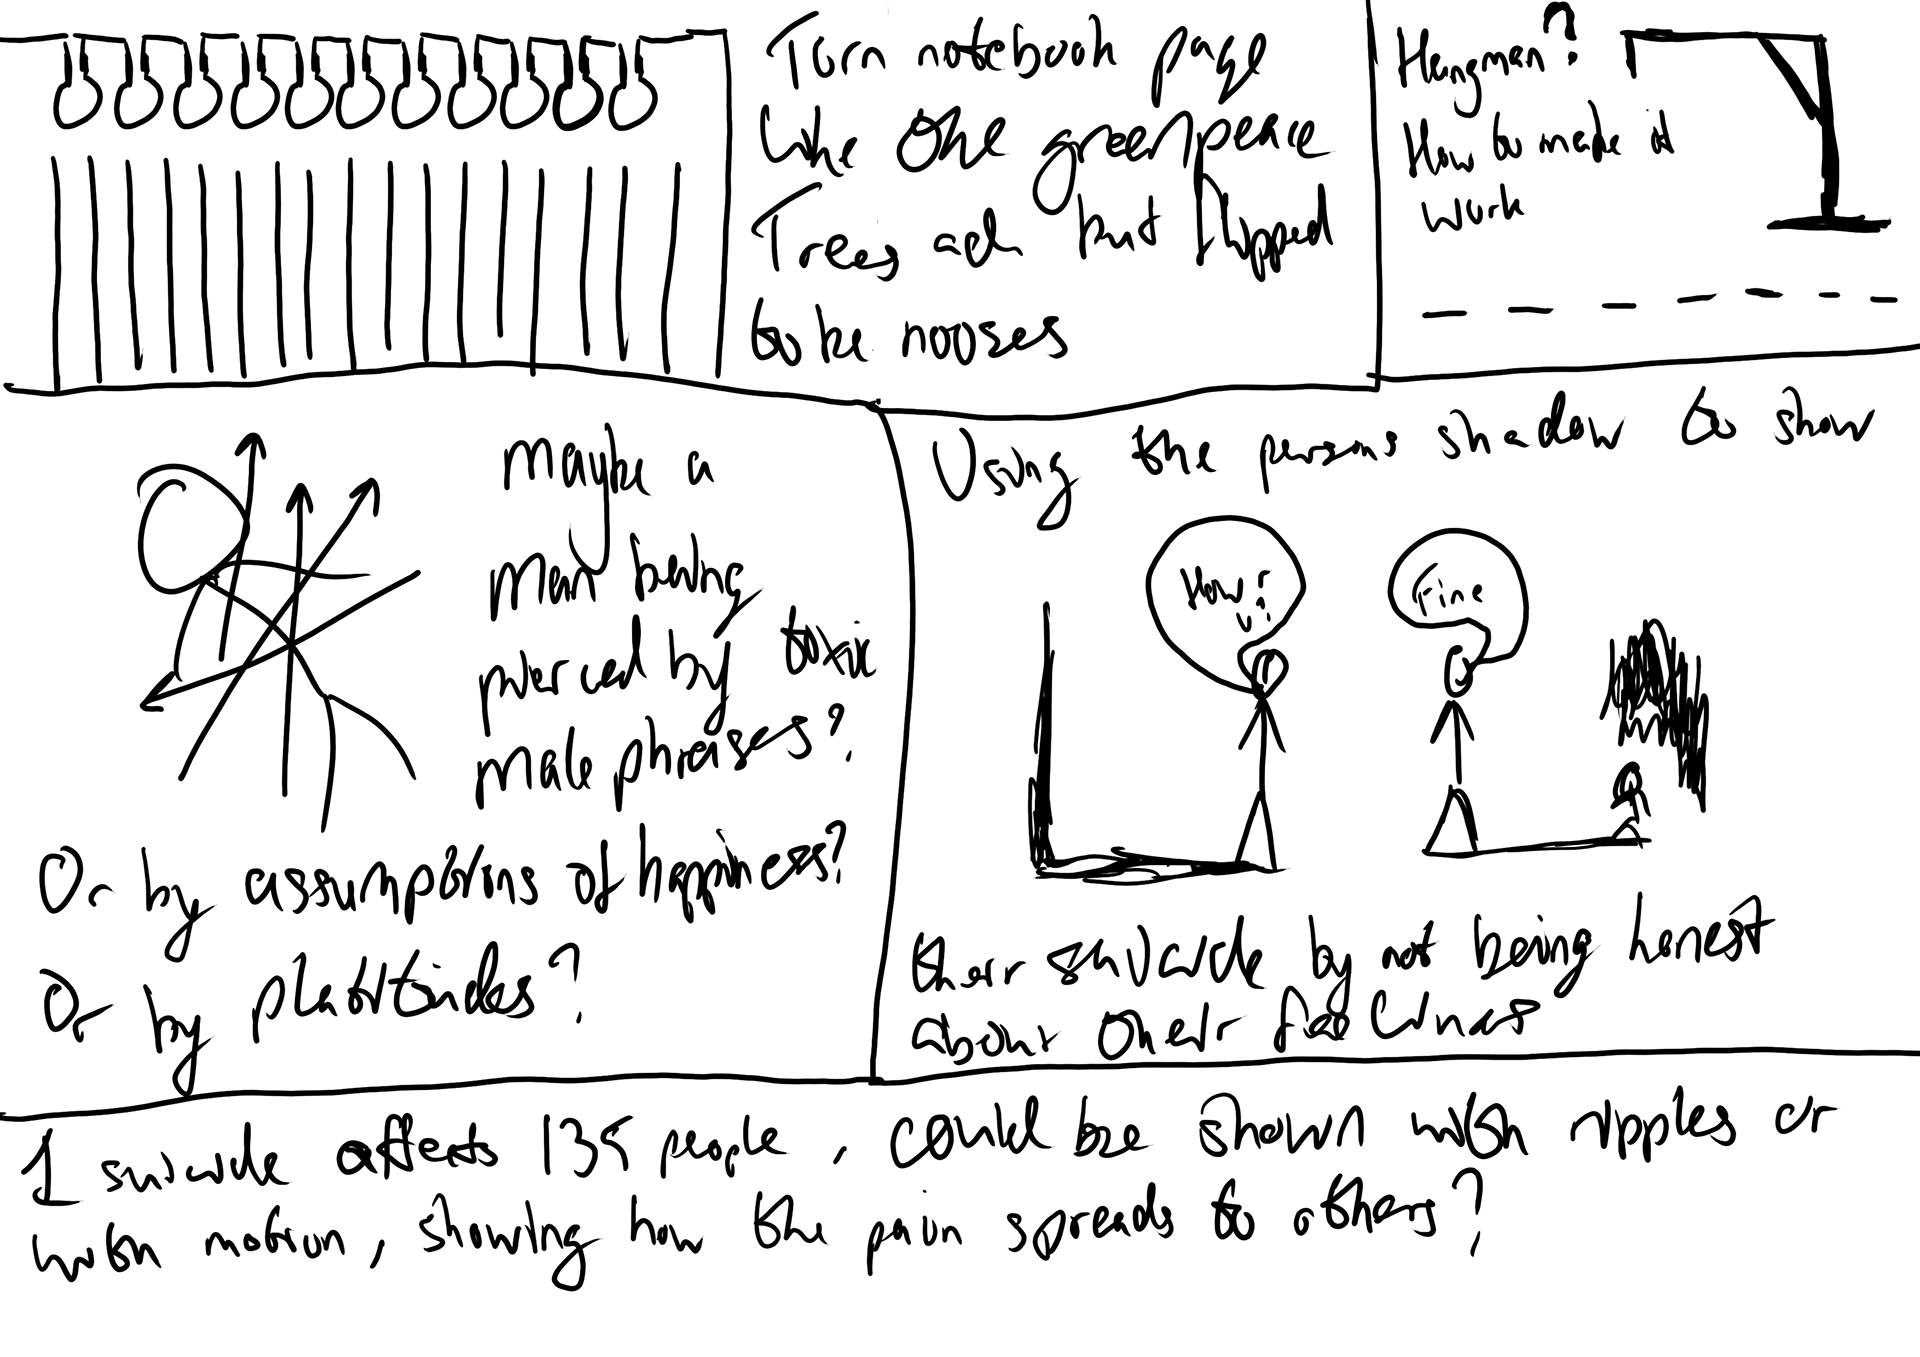 Turn notebook page
like one greenpeace
Trees ad but flipped
to be nooses
Hangman?
How to made it
work
maybe a
man being
pierced by toxic
male phrases?
Or by assumptions of happiness?
Or by platitudes?
Using the persons shadow to show
How r
u?
Fine
their suicide by not being honest
about their feelings
1 suicide affects 135 people, could be shown with ripples or
with motion, showing how the pain spreads to others?